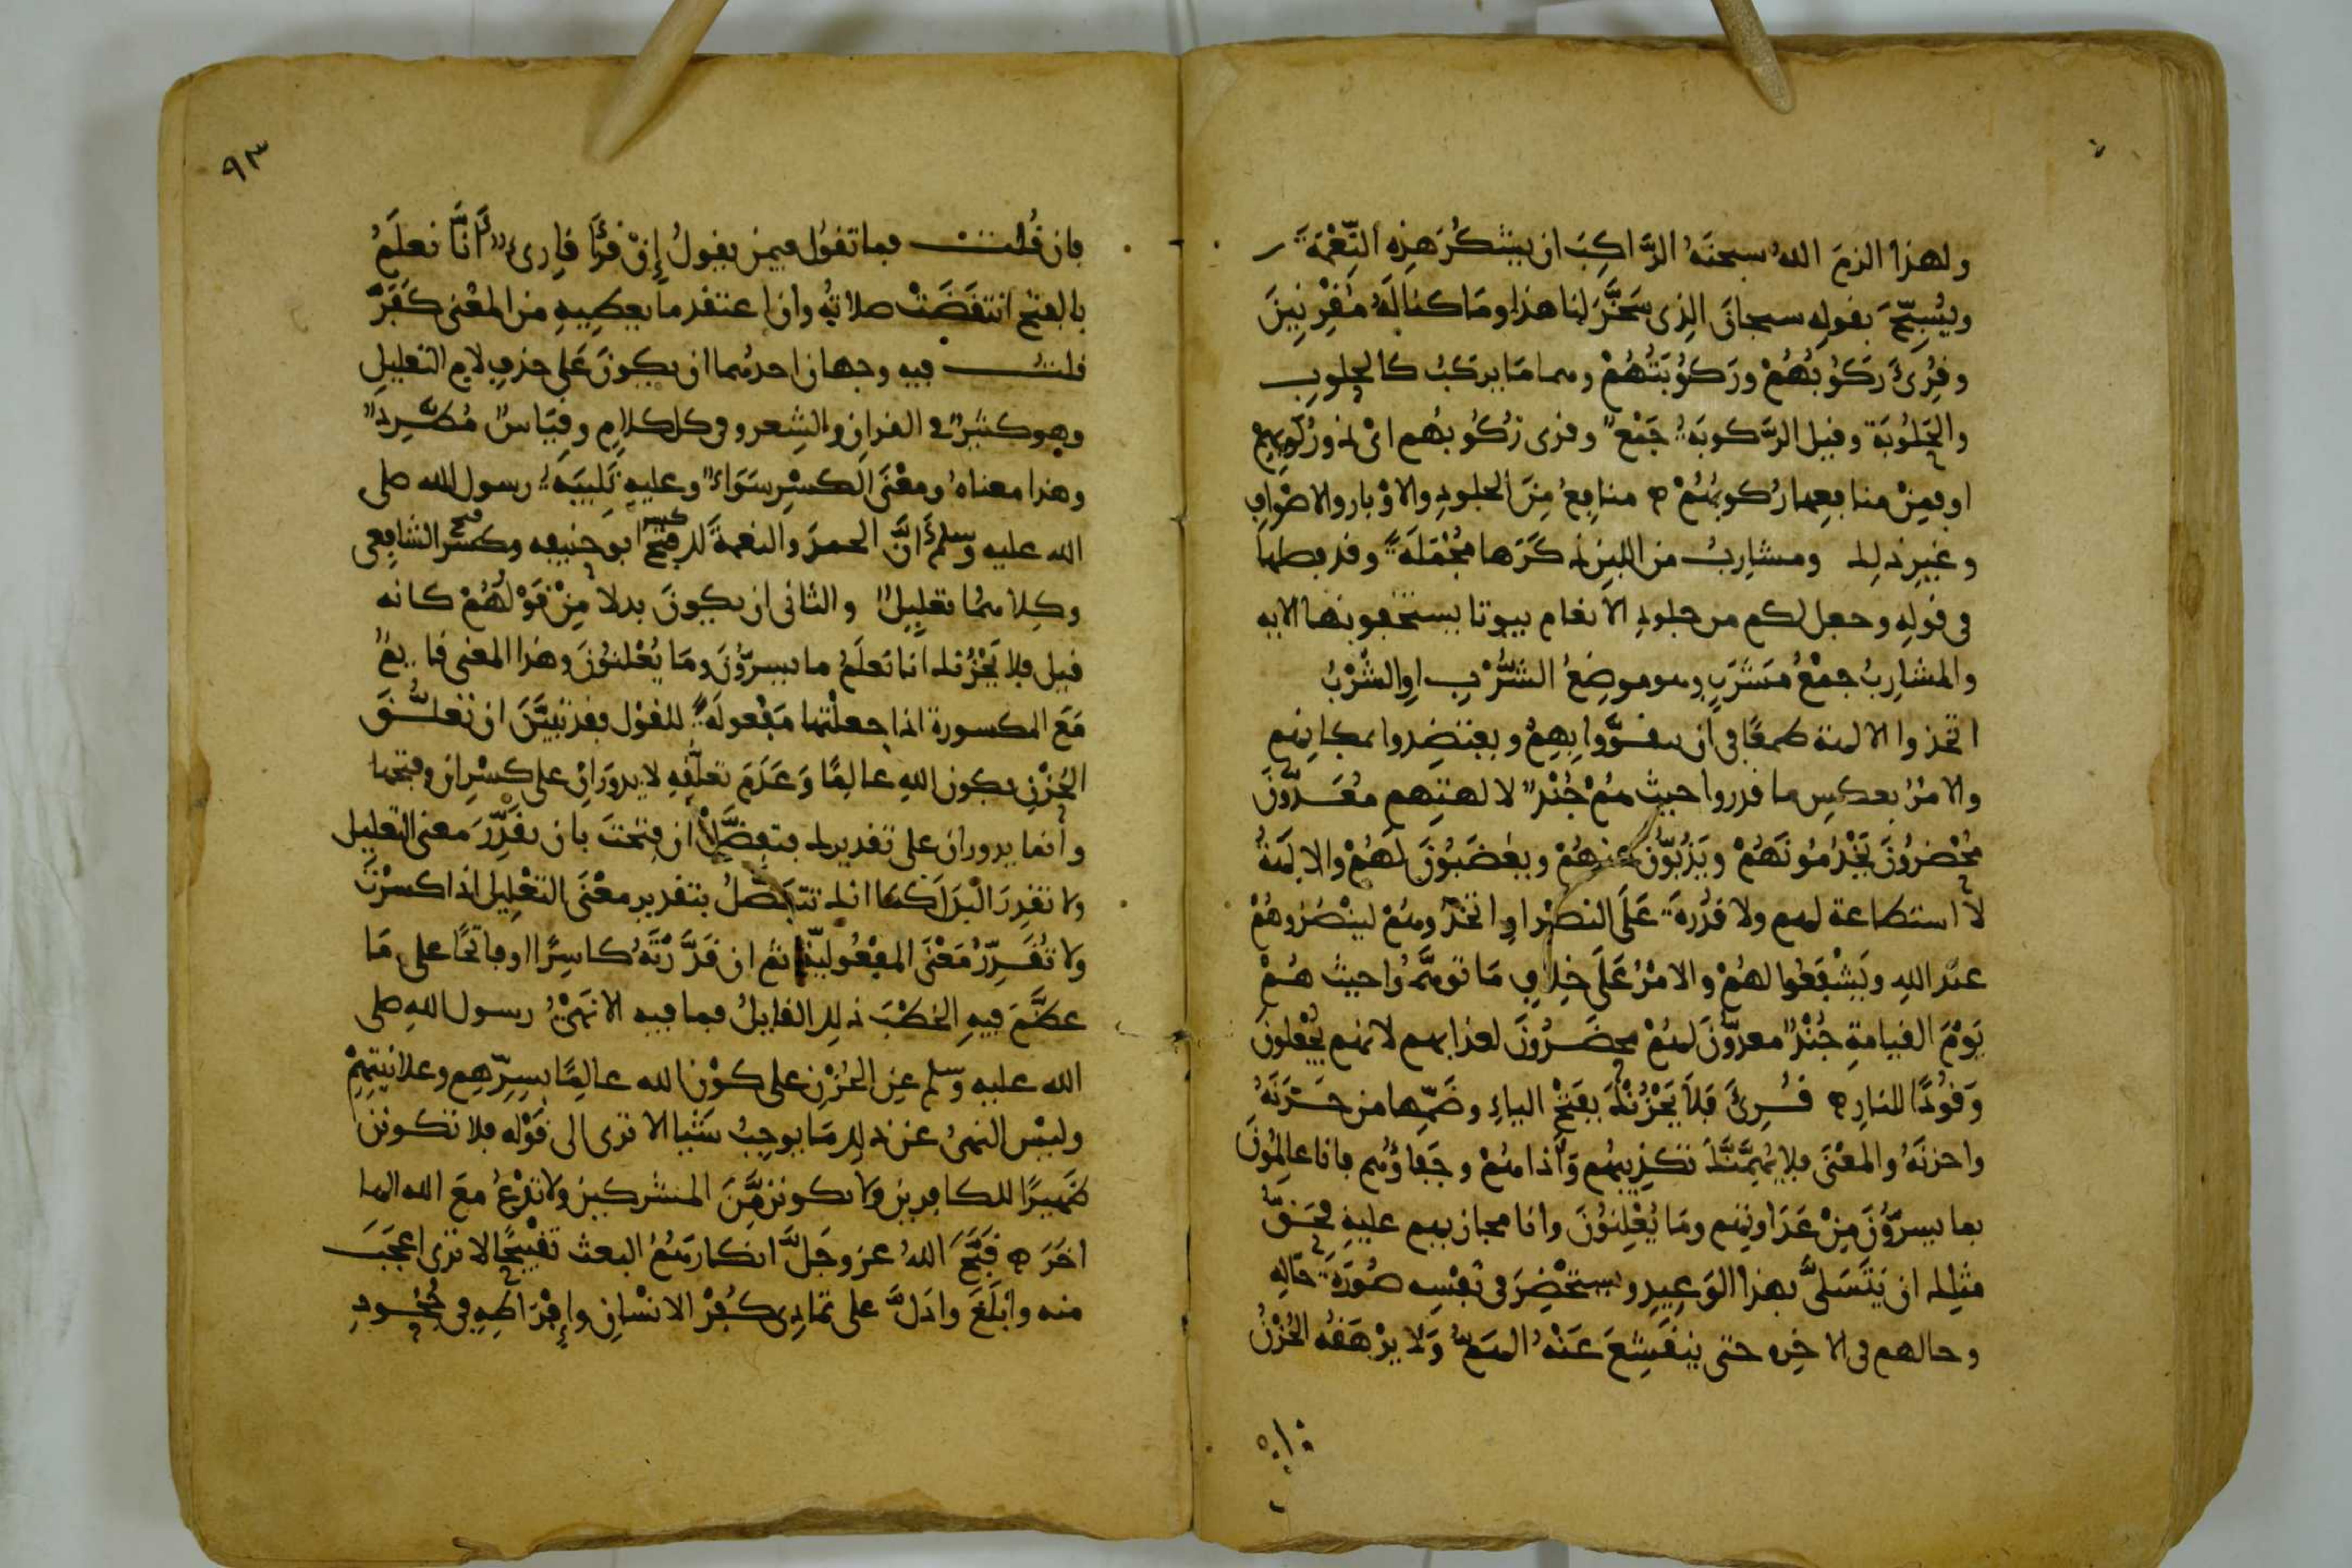 ولهذا الزم الله سبحنه الراكب ان يشكر هذه النعمة
ويسبح بقوله سبحان الذى سخر لنا هذا وما كنا له مقرنين
وقرئ ركوبهم وركوبتهم وهما ما يركب كالحلوب
والحلوبة وقيل الركوبة جمع وقرى ركوبهم اى ذو ركوبهم
او فمن منافعها ركوبهم ه منافع من الجلود والاوبار والاصواف
وغير ذلك ومشارب من اللبن ذكرها مجملة وقد فصلها
فى قوله وجعل لكم من جلود الانعام بيوتا تستخفونها الايه
والمشارب جمع مشرب وهو موضع الشرب او الشرب
اتخذوا الالهة طمعا فى ان يتقووا بهم ويعتضدوا بمكانهم
والامر بعكس ما قدروا حيث هم جند لالهتهم معدون
محضرون يخدمونهم ويذبون عنهم ويغضبون لهم والالهة
لا استطاعة لهم ولا قدرة على النصر او اتخذوهم لينصروهم
عند الله ويشفعوا لهم والامر على خلاف ما توهموا حيث هم
يوم القيامة جند معدون لهم محضرون لعذابهم لانهم يجعلون
وقودا للنار ه قرئ فلا يحزنك بفتح الياء وضمها من حزنه
واحزنه والمعنى فلا يهمنك تكذيبهم واذاهم وجفاؤهم فانا عالمون
بما يسرون من عداوتهم وما يعلنون وانا مجازيهم عليه فحق
مثلك ان يتسلى بهذا الوعيد ويستحضر فى نفسه صورة حاله
وحالهم فى الاخره حتى ينقشع عنه الهم ولا يرهقه الحزن
٩٣
فان قلت فما تقول فيمن يقول إن قرأ قارئ أنا نعلم
بالفتح انتقضت صلاته وان اعتقد ما يعطيه من المعنى كفر
قلت فيه وجهان احدهما ان يكون على حذف لام التعليل
وهو كثير فى القران والشعر وفى كل كلام وقياس مطرد
وهذا معناه ومعنى الكسر سواء وعليه تلبية رسول الله صلى
الله عليه وسلم أن الحمد والنعمة لك فتح كسر ابو حنيفه وكسر فتح الشافعى
وكلاهما تعليل والثانى ان يكون بدلا من قولهم كانه
قيل فلا يحزنك انا نعلم ما يسرون وما يعلنون وهذا المعنى قايم
مع المكسورة اذا جعلتها مفعولة للقول فقد تبين ان تعلق
الحزن بكون الله عالما وعدم تعلقه لا يدوران على كسر ان وفتحها
وانما يدوران على تقديرك فتفصل ان فتحت بان تقدر معنى التعليل
ولا تقدر البدل كما انك تتفصل بتقدير معنى التعليل اذا كسرت
ولا تقدر معنى المفعولية ثم ان قدرته كاسرا او فاتحا على ما
عظم فيه الخطب ذلك القايل فما فيه الا نهى رسول الله صلى
الله عليه وسلم عن الحزن على كون الله عالما بسرهم وعلانيتهم
وليس النهى عن ذلك مما يوجب شيا الا ترى الى قوله فلا تكونن
ظهيرا للكافرين ولا تكونن من المشركين ولا تدع مع الله الها
اخر ه قبح الله عز وجل انكارهم البعث تقبيحا لا ترى اعجب
منه وأبلغ وادل على تمادى كفر الانسان وإفراطه فى جحود